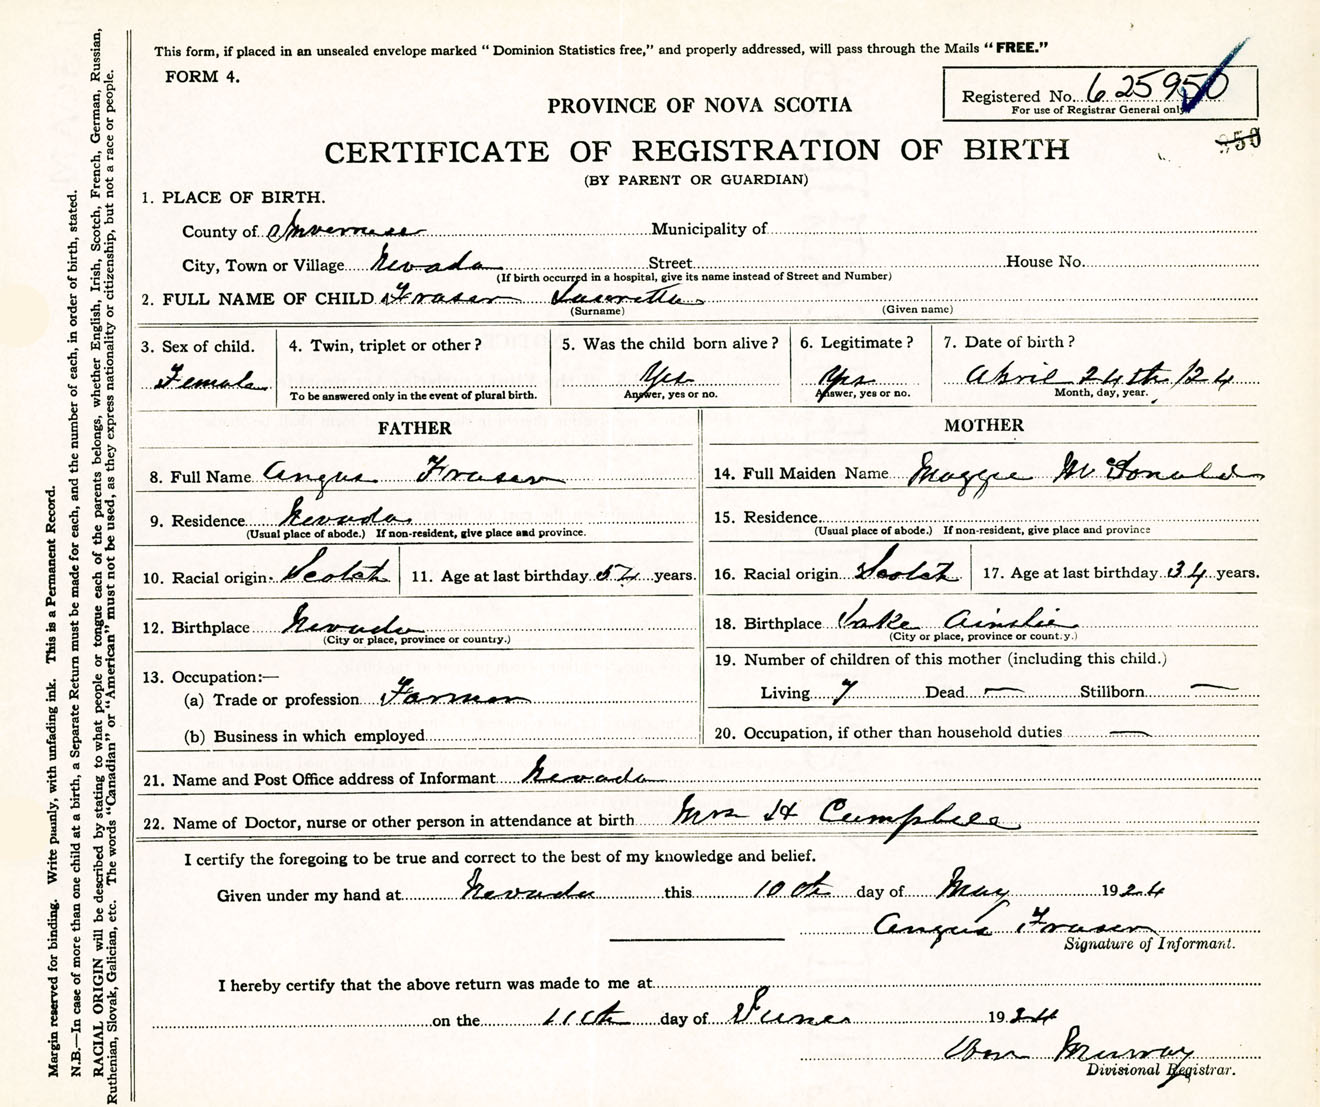 This form, if placed in an unsealed envelope marked "Dominion Statistics free," and properly addressed, will pass through the Mails "FREE."
FORM 4.
Registered No. 625950
For use of Registrar General only
PROVINCE OF NOVA SCOTIA
950
CERTIFICATE OF REGISTRATION OF BIRTH
(BY PARENT OR GUARDIAN)
1. PLACE OF BIRTH.
County of Inverness Municipality of
City, Town or Village Nevada Street House No.
(If birth occurred in a hospital, give its name instead of Street and Number)
2. FULL NAME OF CHILD Fraser Lauretta
(Surname) (Given name)
3. Sex of child. 4. Twin, triplet or other? 5. Was the child born alive? 6. Legitimate? 7. Date of birth?
Female Yes Yes April 24th /24
To be answered only in the event of plural birth. Answer, yes or no. Answer, yes or no. Month, day, year.
FATHER MOTHER
8. Full Name Angus Fraser 14. Full Maiden Name Maggie McDonald
9. Residence Nevada 15. Residence
(Usual place of abode.) If non-resident, give place and province. (Usual place of abode.) If non-resident, give place and province
10. Racial origin Scotch 11. Age at last birthday years. 16. Racial origin Scotch 17. Age at last birthday 34 years.
12. Birthplace Nevada 18. Birthplace Lake Ainslie
(City or place, province or country.) (City or place, province or country.)
13. Occupation:— 19. Number of children of this mother (including this child.)
(a) Trade or profession Farmer Living 7 Dead — Stillborn —
(b) Business in which employed 20. Occupation, if other than household duties —
21. Name and Post Office address of Informant Nevada
22. Name of Doctor, nurse or other person in attendance at birth Mrs H Campbell
I certify the foregoing to be true and correct to the best of my knowledge and belief.
Given under my hand at Nevada this 10th day of May 1924
Angus Fraser
Signature of Informant.
I hereby certify that the above return was made to me at
on the 11th day of June 1924
Murray
Divisional Registrar.
Margin reserved for binding. Write plainly, with unfading ink. This is a Permanent Record.
N.B.—In case of more than one child at a birth, a Separate Return must be made for each, and the number of each, in order of birth, stated.
RACIAL ORIGIN will be described by stating to what people or tongue each of the parents belongs, whether English, Irish, Scotch, French, German, Russian,
Ruthenian, Slovak, Galician, etc. The words "Canadian" or "American" must not be used, as they express nationality or citizenship, but not a race or people.